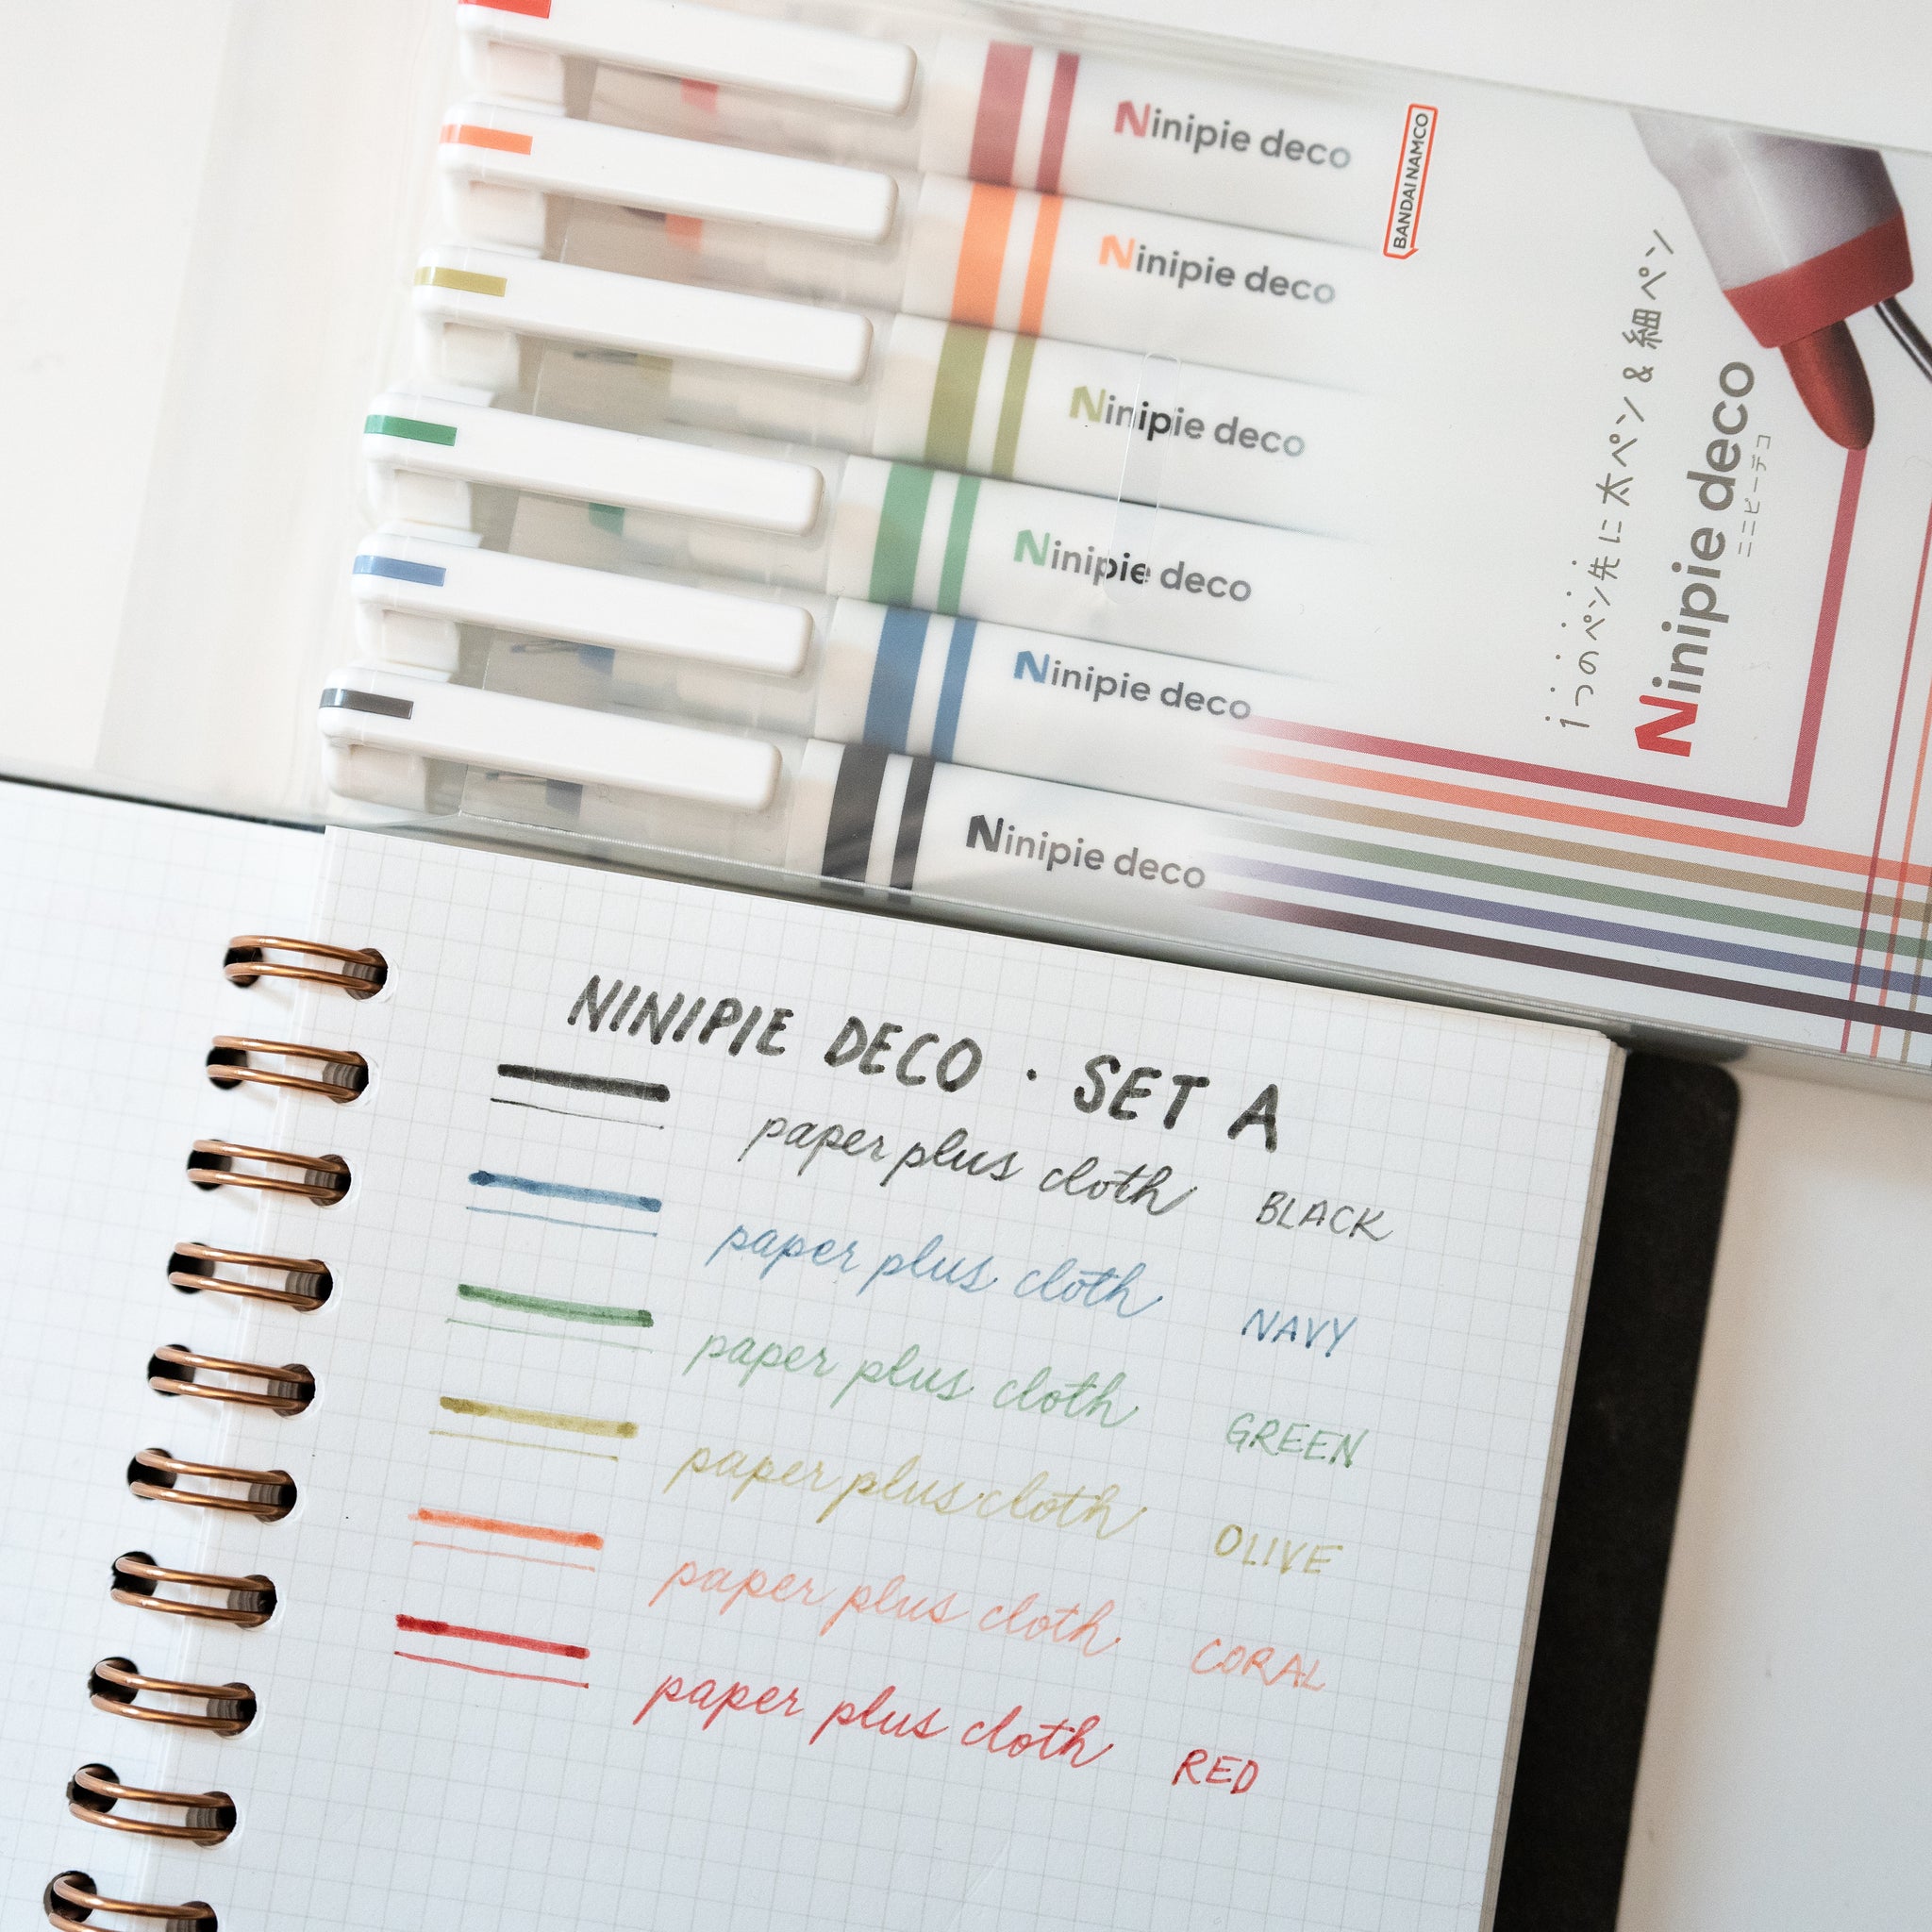 Ninipie deco
BANDAI NAMCO
Ninipie deco
Ninipie deco
Ninipie deco
Ninipie deco
Ninipie deco
1つのペン先に太ペン&細ペン
Ninipie deco
ニニピーデコ
NINIPIE DECO · SET A
paper plus cloth BLACK
paper plus cloth NAVY
paper plus cloth GREEN
paper plus cloth OLIVE
paper plus cloth CORAL
paper plus cloth RED